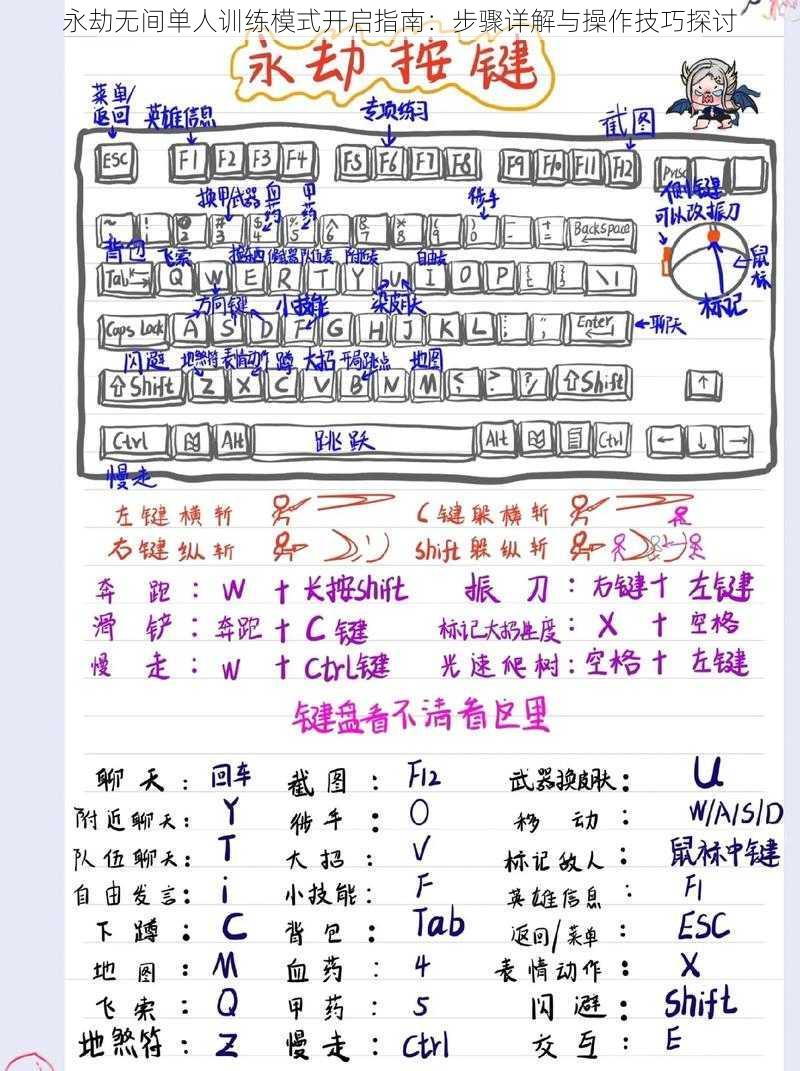 永劫无间单人训练模式开启指南：步骤详解与操作技巧探讨
永劫按键
菜单/返回 英雄信息 专项练习 截图
ESC F1 F2 F3 F4 F5 F6 F7 F8 F9 F10 F11 F12 Prtsc
换甲 武器 血药 甲药 徒手 侧键可以改振刀
~ ! 2 # 3 $ 4 % 5 ^ 6 & 7 * 8 ( 9 ) 0 - + = Backspace
背包 飞索 队伍 附近 自由
Tab Q W E R T Y U I O P { [ } ] \ |
鼠标
方向键 小技能 换皮肤 标记
Caps Lock A S D F G H J K L : ; Enter 聊天
闪避 地煞符 表情动作 蹲 大招 开局跳点 地图
Shift Z X C V B N M < ? / Shift ↑
Ctrl Alt 跳跃 Alt Ctrl ← ↓ →
慢走
左键横斩 C键躲横斩
右键纵斩 shift躲纵斩
奔跑：W + 长按shift 振刀：右键+左键
滑铲：奔跑+C键 标记大招进度：X + 空格
慢走：W + Ctrl键 光速爬树：空格+左键
键盘看不清看这里
聊天：回车 截图：F12 武器换皮肤：U
附近聊天：Y 徒手：O 移动：W/A/S/D
队伍聊天：T 大招：V 标记敌人：鼠标中键
自由发言：i 小技能：F 英雄信息：F1
下蹲：C 背包：Tab 返回/菜单：ESC
地图：M 血药：4 表情动作：X
飞索：Q 甲药：5 闪避：Shift
地煞符：Z 慢走：Ctrl 交互：E